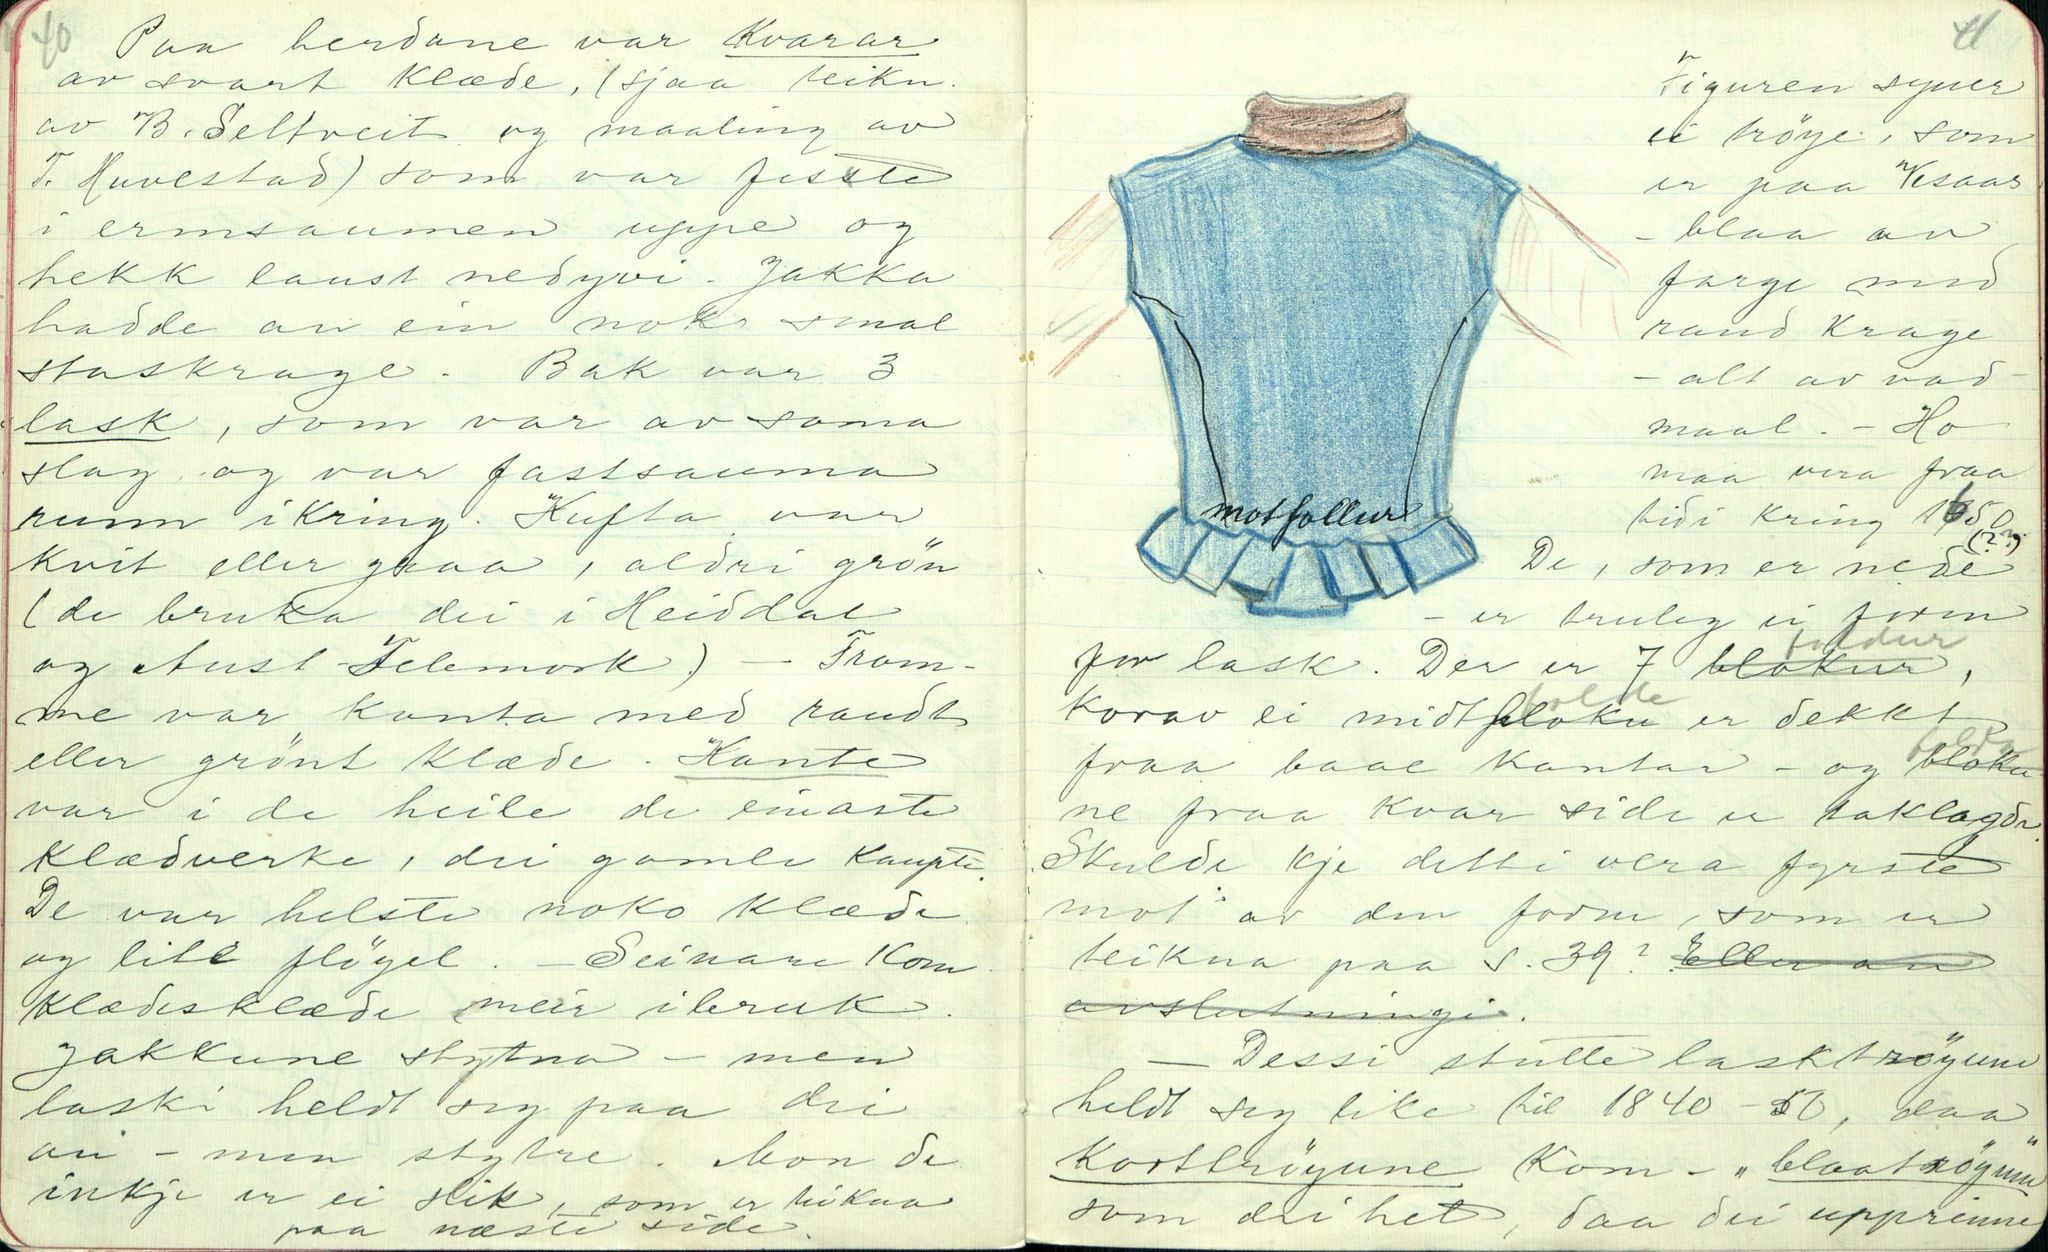 40
Paa herdane var Kvarar
av svart klæde, (sjaa teikn.
av B. Seltveit og maaling av
T. Huvestad) som var feste
i ermsaumen uppe og
hekk laust nedyvi. Jakka
hadde au ein noko smal
staskrage. Bak var 3
lask, som var av soma
slag og var fastsauma
runn ikring. Kufta var
kvit eller graa, aldri grön
(de bruka dei i Heiddal
og Aust-Telemork) - From-
me var kanta med raudt
eller grönt klæde. Kante
var i de heile de einaste
klædverke, dei gamle kaupte.
De var helste noko klæde
og lite flögel. - Seinare kom
klædesklæde meir ibruk.
Jakkune stytna - men
laski heldt seg paa dei
au - men stytre. Mon de
inkje er ei slik, som er teikna
paa næste side.
41
Figuren syner
ei tröye, som
er paa
- blaa av
farge med
raud krage
- alt av vad-
maal. - Ho
maa vera fraa
tidi kring 1650
(??)
motfollur
De, som er nede
- er truleg ei form
for lask. Der er 7 blokur, foldur
korav ei midtbloku folde er dekkt
fraa baae kantar - og bloku-
ne fraa kvar side er taklagde.
Skulde kje detti vera fyrste
mot av den form, som er
teikna paa s. 39? Eller an
avslutningi.
- Dessi stutte lasktröyune
heldt seg like til 1840-50, daa
Korttröyune kom - "blaatröyune"
som dei het, daa dei upprinne